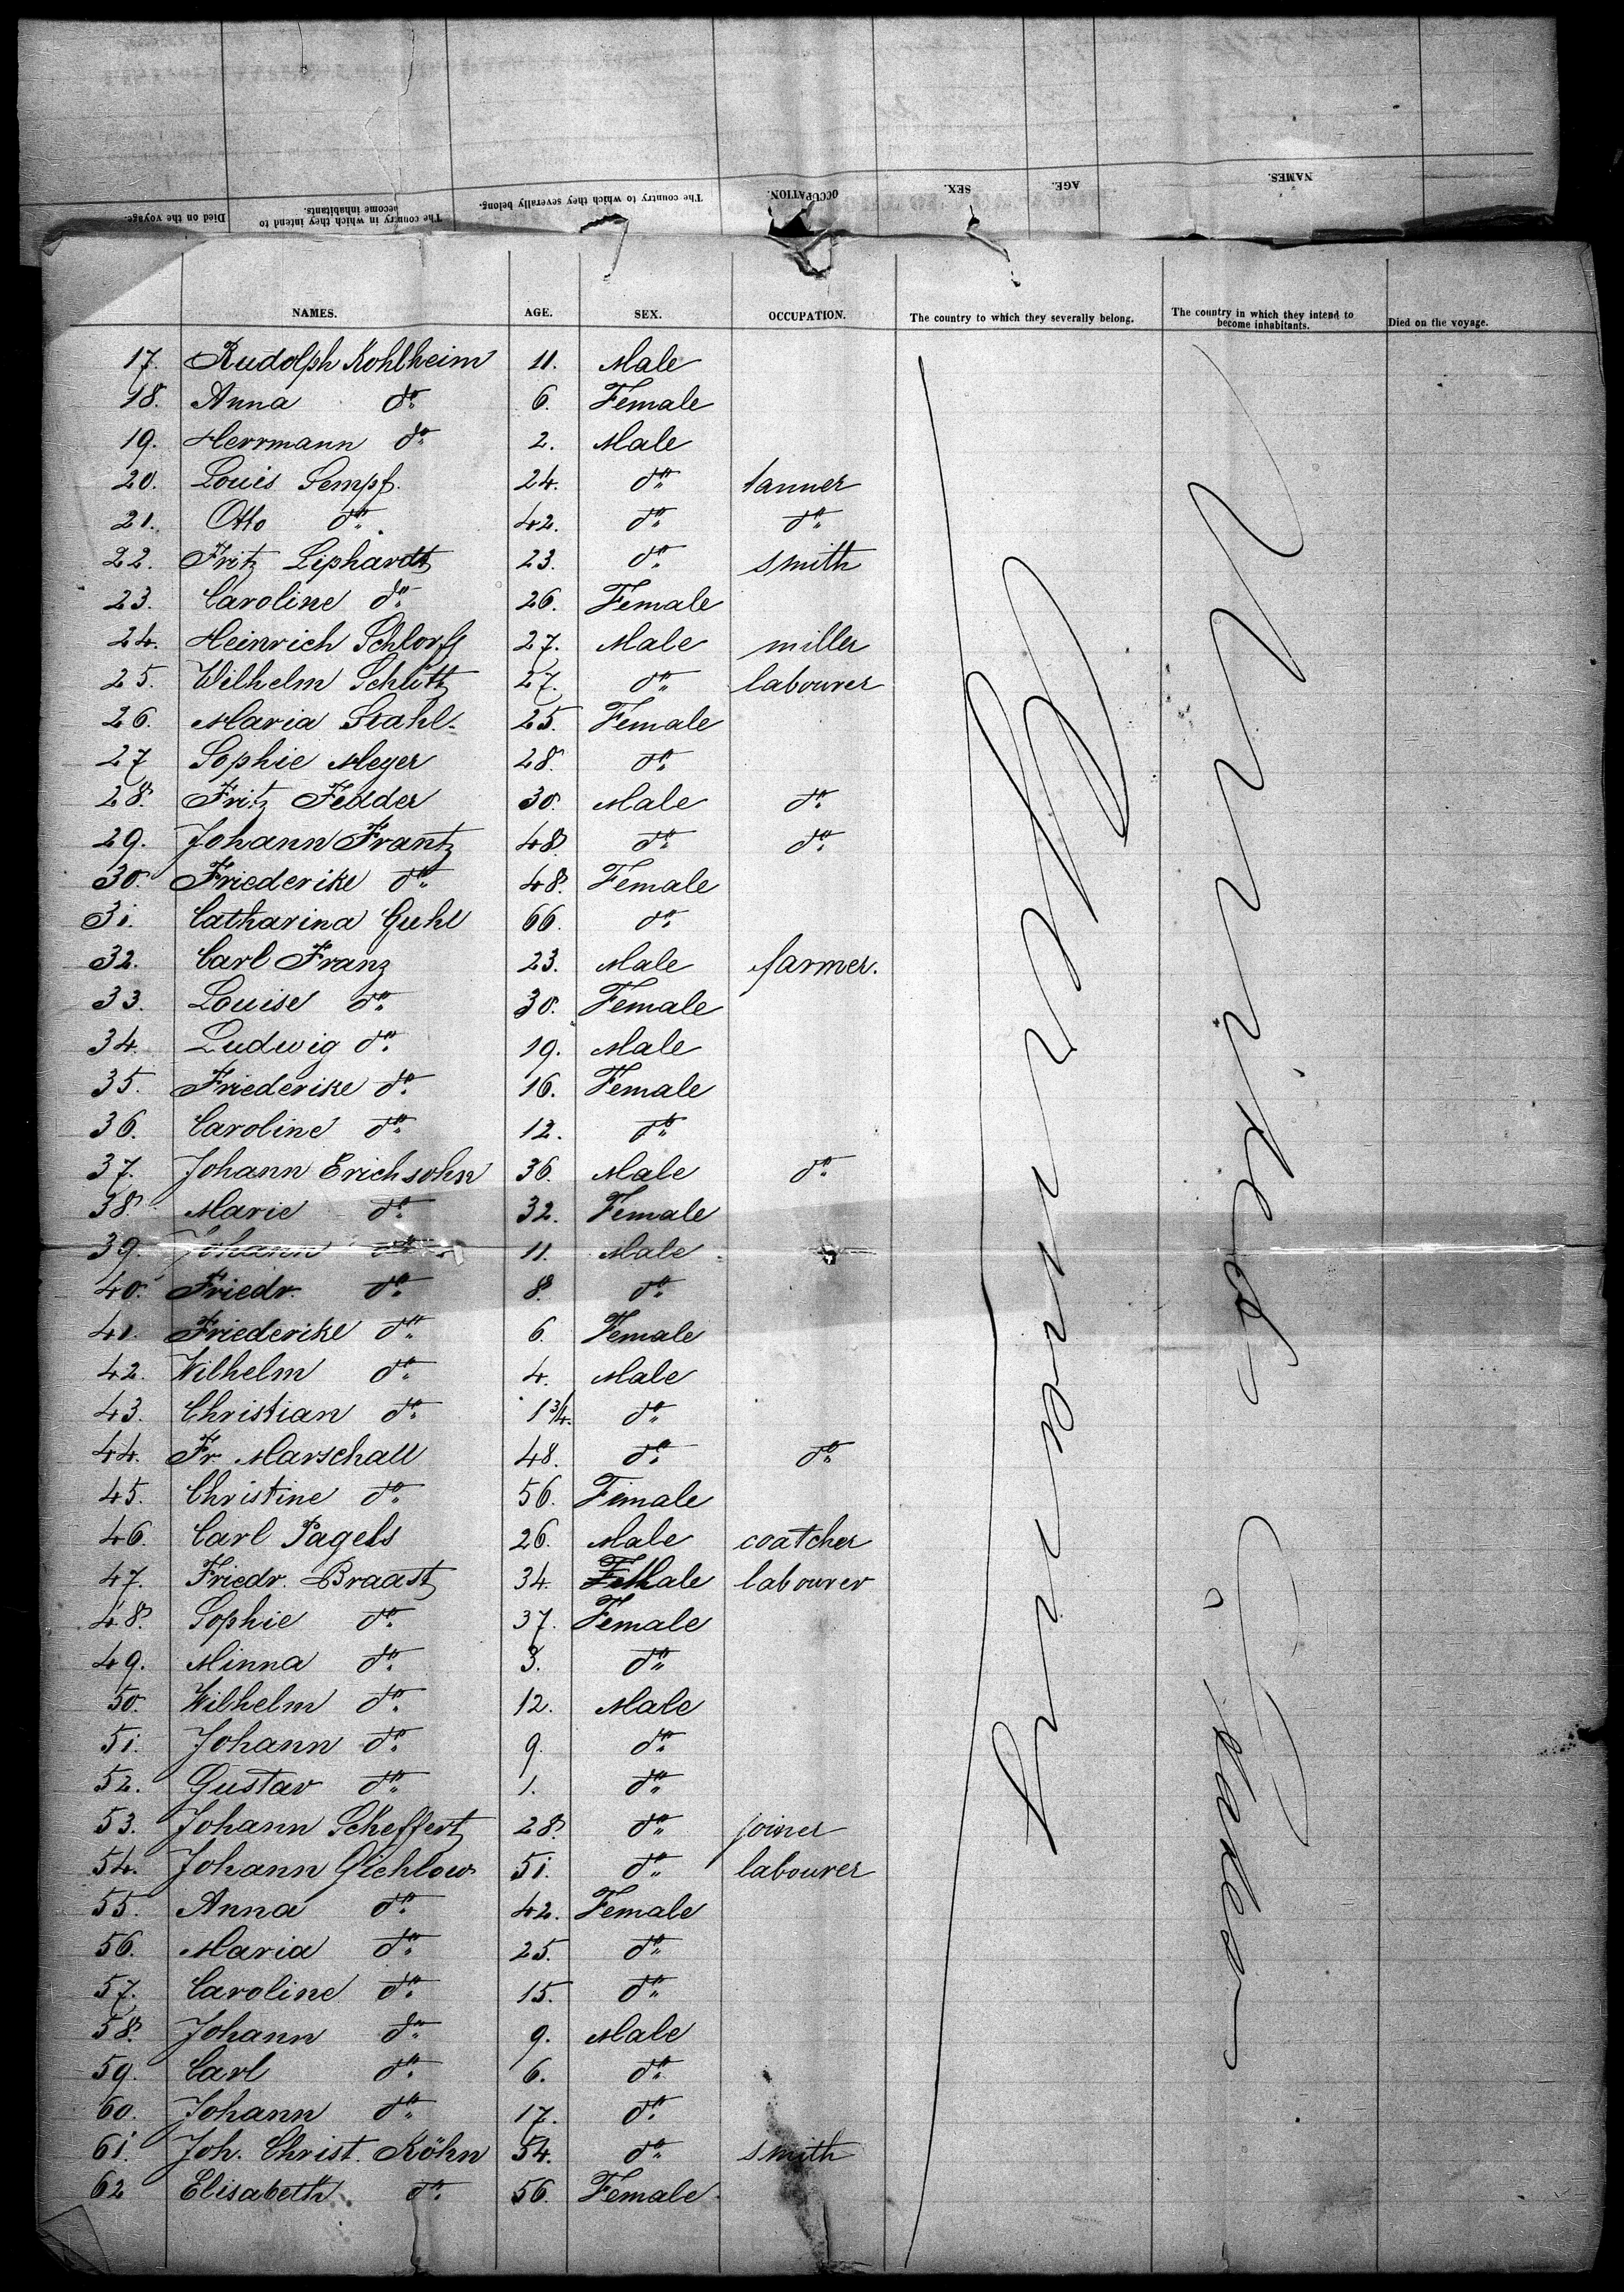 Died on the voyage. The country in which they intend to become inhabitants. The country to which they severally belong. OCCUPATION. SEX. AGE. NAMES.
NAMES. AGE. SEX. OCCUPATION. The country to which they severally belong. The country in which they intend to become inhabitants. Died on the voyage.
17. Rudolph Kohlheim 11. Male
18. Anna do. 6. Female
19. Herrmann do. 2. Male
20. Louis Sempf. 24. do. tanner
21. Otto do. 42. do. do.
22. Fritz Liphardt 23. do. smith
23. Caroline do. 26. Female
24. Heinrich Schlorff 27. Male miller
25. Wilhelm Schütt 27. do. labourer
26. Maria Stahl. 25. Female
27 Sophie Meyer 28. do.
28. Fritz Fedder 30. Male do.
29. Johann Frantz 48. do. do.
30. Friederike do. 48. Female
31. Catharina Guhl 66. do.
32. Carl Franz 23. Male farmer.
33. Louise do. 30. Female
34. Ludwig do. 19. Male
35. Friederike do. 16. Female
36. Caroline do. 12. do.
37. Johann Erichsohn 36. Male do.
38. Marie do. 32. Female
39. Johann do. 11. Male
40. Friedr. do. 8. do.
41. Friederike do. 6. Female
42. Wilhelm do. 4. Male
43. Christian do. 1 3/4. do.
44. Fr. Marschall 48. do. do.
45. Christine do. 56. Female
46. Carl Pagels 26. Male coatcher
47. Friedr. Braast 34. Male labourer
48. Sophie do. 37. Female
49. Minna do. 3. do.
50. Wilhelm do. 12. Male
51. Johann do. 9. do.
52. Gustav do. 1. do.
53. Johann Scheffert 28. do. joiner
54. Johann Gichlow 51. do. labourer
55. Anna do. 42. Female
56. Maria do. 25. do.
57. Caroline do. 15. do.
58. Johann do. 9. Male
59. Carl do. 6. do.
60. Johann do. 17. do.
61. Joh. Christ. Köhn 54. do. smith
62 Elisabeth do. 56. Female.
Germany
United States